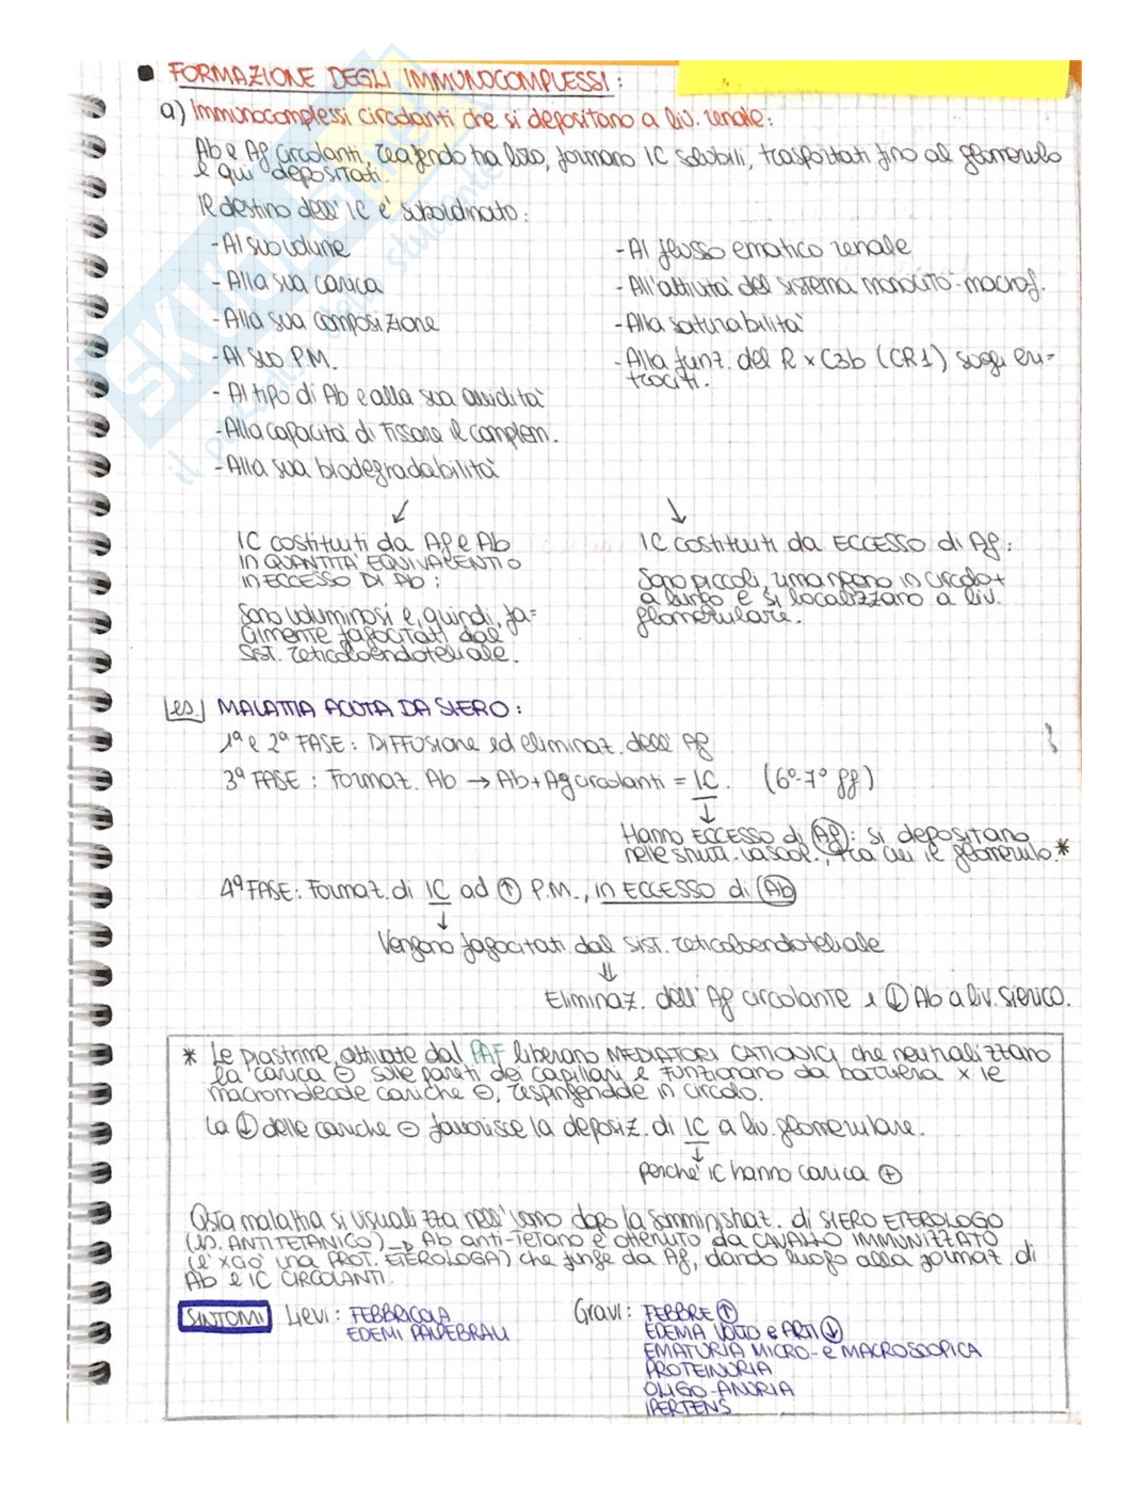 • FORMAZIONE DEGLI IMMUNOCOMPLESSI:
a) Immunocomplessi circolanti che si depositano a liv. renale:
Ab e Ag circolanti, reagendo tra loro, formano IC solubili, trasportati fino al glomerulo
e qui depositati.
Il destino dell' IC e' subordinato:
- Al suo volume
- Alla sua carica
- Alla sua composizione
- Al suo P.M.
- Al tipo di Ab e alla sua avidità
- Alla capacità di fissare il complem.
- Alla sua biodegradabilità
- Al flusso ematico renale
- All'attività del sistema monocito-macrof.
- Alla saturabilità
- Alla funz. del R x C3b (CR1) sugli eri-
trociti.
↙
IC costituiti da Ag e Ab
IN QUANTITA' EQUIVALENTI O
IN ECCESSO DI Ab:
Sono voluminosi e, quindi, fa=
cilmente fagocitati dal
sist. reticoloendoteliale.
↘
IC costituiti da ECCESSO di Ag:
Sono piccoli, rimangono in circolo +
a lungo e si localizzano a liv.
glomerulare.
es. MALATTIA ACUTA DA SIERO:
1ª e 2ª FASE: DIFFUSIONE ed eliminaz. dell' Ag
3ª FASE: Formaz. Ab → Ab + Ag circolanti = IC. (6°-7° gg)
↓
Hanno ECCESSO di Ag: si depositano
nelle strutt. vascol., tra cui il glomerulo.*
4ª FASE: Formaz. di IC ad ↑ P.M., in ECCESSO di Ab
↓
Vengono fagocitati dal sist. reticoloendoteliale
⇓
Eliminaz. dell' Ag circolante e ↓ Ab a liv. sierico.
* Le piastrine attivate dal PAF liberano MEDIATORI CATIONICI che neutralizzano
la carica ⊖ sulle pareti dei capillari e funzionano da barriera x le
macromolecole cariche ⊖, respingendole in circolo.
La ↓ delle cariche ⊖ favorisce la deposiz. di IC a liv. glomerulare.
↓
perché IC hanno carica ⊕
Qsta malattia si visualizza nell' uomo dopo la somministraz. di SIERO ETEROLOGO
(es. ANTITETANICO) → Ab anti-Tetano e' ottenuto da CAVALLO IMMUNIZZATO
(e' xciò una PROT. ETEROLOGA) che funge da Ag, dando luogo alla formaz. di
Ab e IC CIRCOLANTI.
SINTOMI Lievi: FEBBRICOLA
EDEMI PALPEBRALI
Gravi: FEBBRE ↑
EDEMA VOLTO e ARTI ↓
EMATURIA MICRO- e MACROSCOPICA
PROTEINURIA
OLIGO-ANURIA
IPERTENS